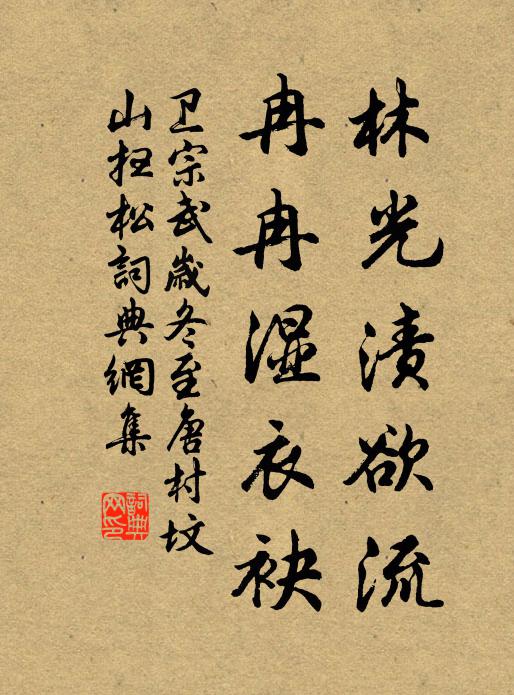 林光渍欲流
冉冉湿衣袂
卫宗武岁冬至唐村坟
山扫松詞典網集
詞典网印